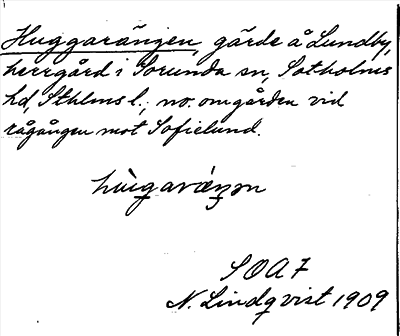 Huggarängen, gärde å Lundby,
herrgård i Sorunda sn, Sotholms
hd, Sthlms l.; no. om gården vid
rågången mot Sofielund.
hùgaræ̀ŋən
SOA 7
N. Lindqvist 1909